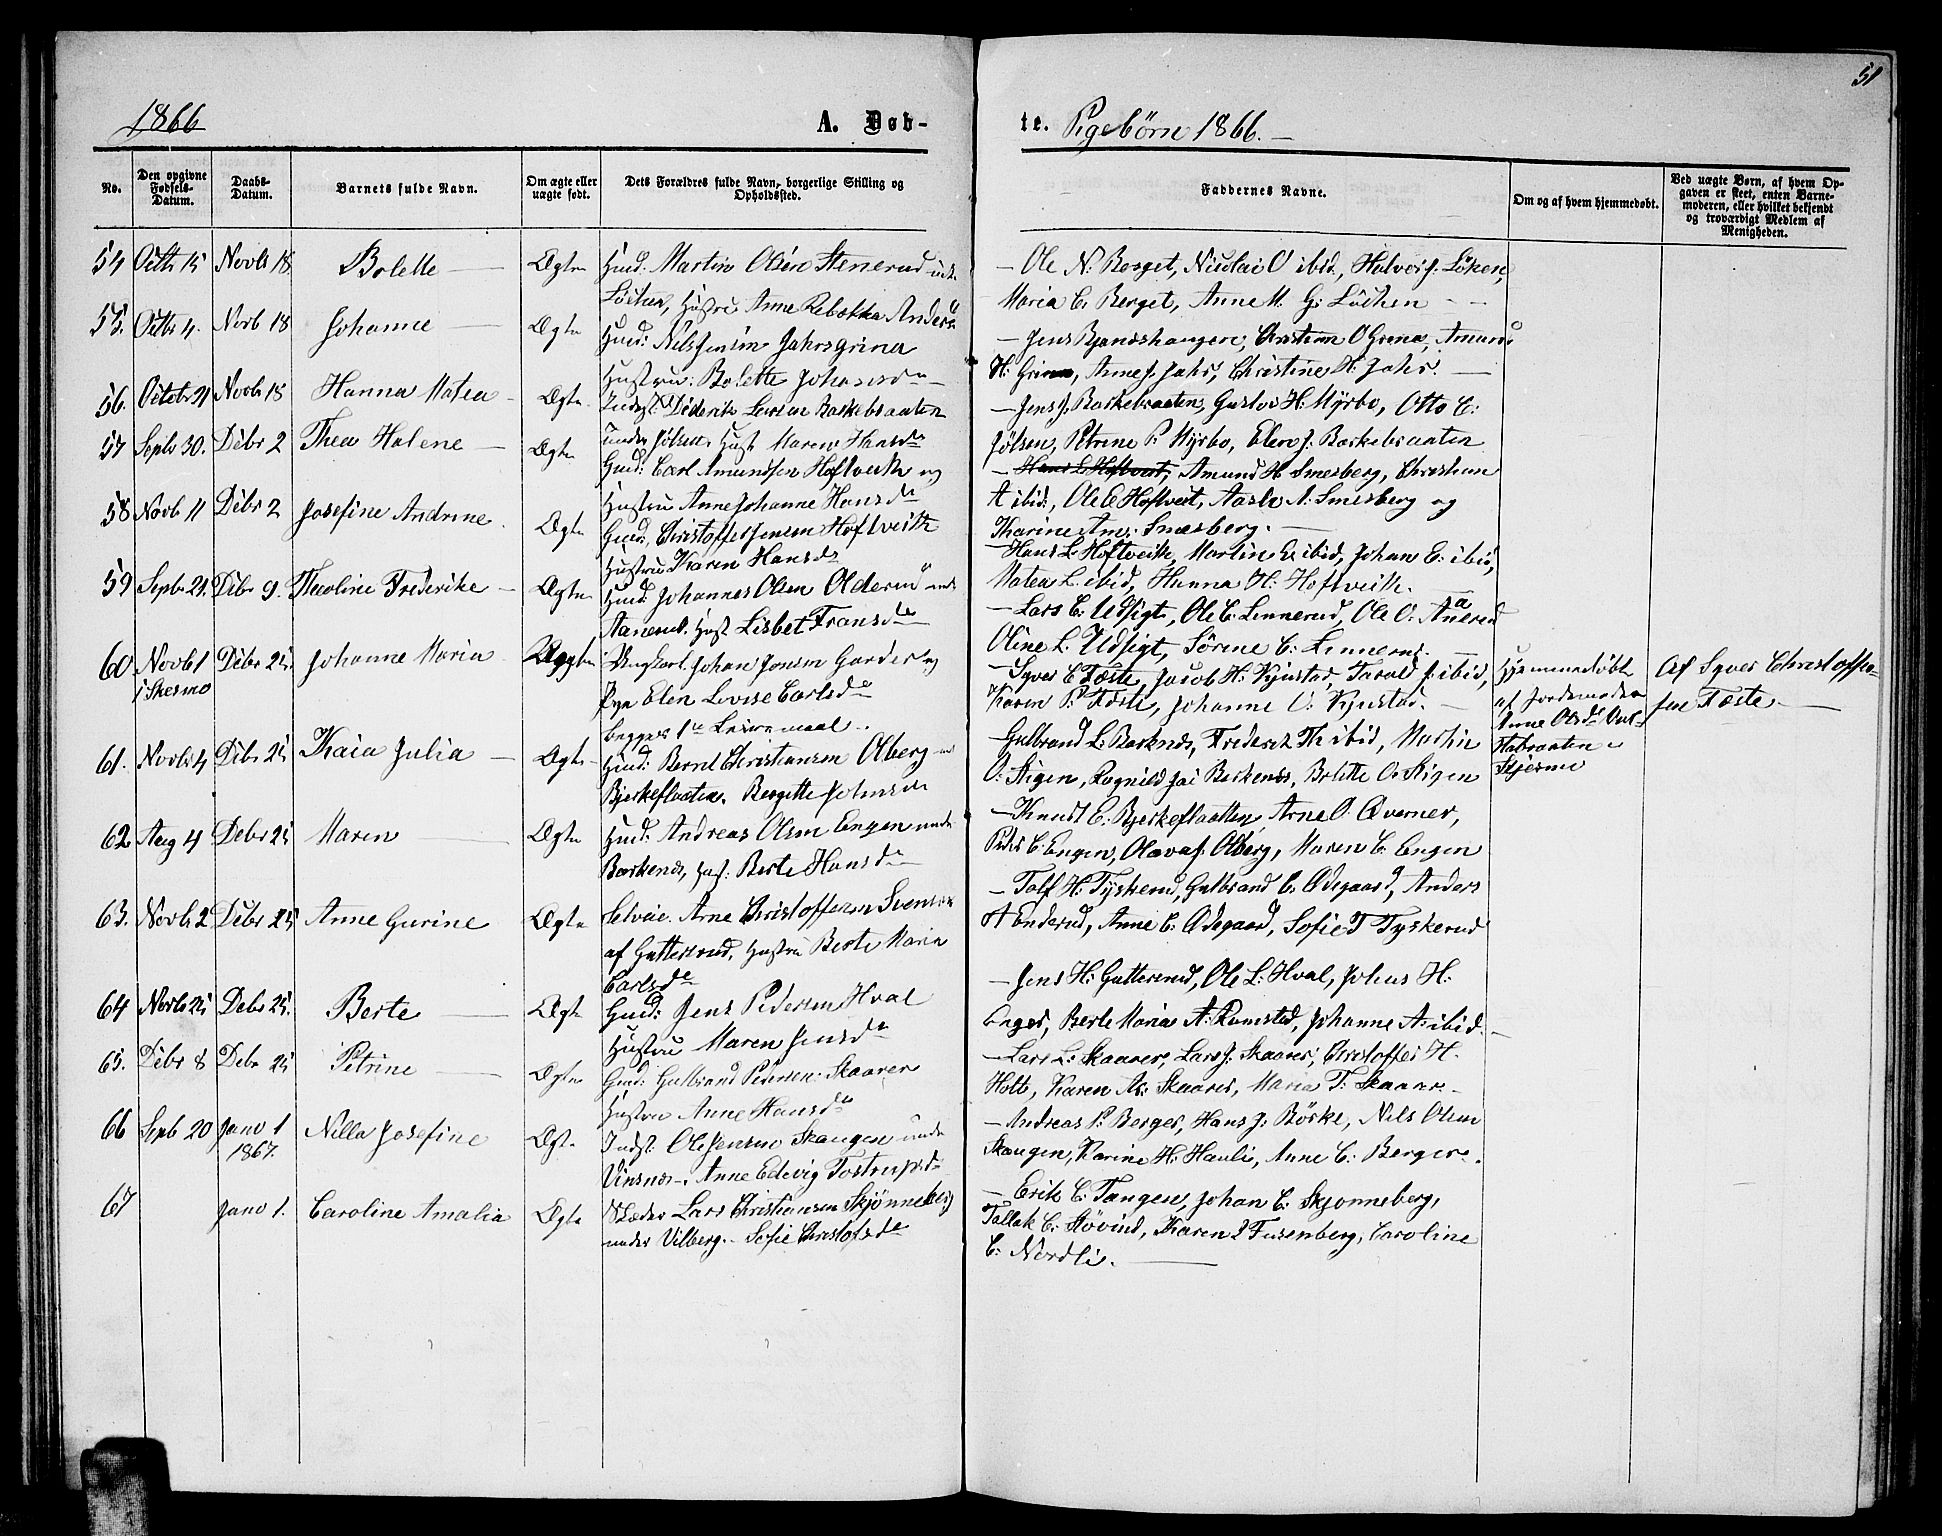 51
1866 A. Døb- te. Pigebørn 1866.
No. Den opgivne Fødsels-Datum. Daabs-Datum. Barnets fulde Navn. Om ægte eller uægte født. Dets Forældres fulde Navn, borgerlige Stilling og Opholdssted. Faddernes Navne. Om og af hvem hjemmedøbt. Ved uægte Børn, af hvem Opgaven er skeet, enten Barnemoderen, eller hvilket bekjendt og troværdigt Medlem af Menigheden.
54 Octb 15 Novb 18 Bolette — Ægte Huusm: Martin Olsen Stenerud
Ole N. Berget, Nicolai O ibid, Halvor J. Löken,
Maria C. Berget, Anne M. G. Löchen
55. Octb 4. Novb 18 Johanne — Ægte Nils Jensen Jahrsgrina
Hustru: Bolette Johansdr
Christian O Grina, Amund
H. Grina, Anne J. Jahr, Christine H. Jahr.
56. Octob 21 Novb 18 Hanna Matea — Ægte Diderik Larsen Barkebraaten
under Jölsen, Hust Maren Hansdr
Jens J. Barkebraaten, Gustav H. Myrbo, Otto C.
Jölsen, Petrine P. Myrbo, Elen J. Barkebraaten
57 Septb 30. Dcbr 2 Thea Halene — Ægte Gmd: Carl Amundsen Hoftvedt og
Hustru Anne Johanne Hansdr
Amund H Smesberg, Christian
A ibid, Ole C Hoftvedt, Aasle A. Smesberg og
Karine Am: Smesberg.
58 Novb 11 Dcbr 2 Josefine Andrine. Ægte Gmd. Christoffer Jensen Hoftveith
Hustru Karen Hansdr
Hans L. Hoftveith, Martin E. ibid, Johan E. ibid,
Matea L. ibid, Hanna H. Hoftveith.
59 Septb 21. Dcbr 9. Theoline Frederike — Ægte Huusm Johannes Olsen Olderud
Aanerud. Hust Lisbet Fransdr
Lars C. Udsigt, Ole C. Linnerud, Ole O. Anerud
Oline L. Udsigt, Sörine C. Linnerud.
60 Novb 1 i Skesmo Dcbr 25 Johanne Maria Uægte Ungkarl Johan Jensen Garder og
Pige Elen Lovise Carlsdr
begges 1te Leiermaal.
Syver C Toste, Jacob H. Kjustad, Tarald J. ibid,
Karen P. Toste, Johanne O. Kjustad.
hjemmedöbt
af Jordemoder
Anne Olsdr
Skjesmo
Af Syver Christoffersen Toste.
61. Novb 4 Dcbr 25 Kaia Julia — Ægte Huusm: Bernt Christiansen Olberg
Bjerkeflaaten. Bergitte Johnsdr
Gulbrand L. Berkenes, Frederik Th ibid, Martin
O. Stigen, Berkenes, Bolette O. Stigen
62 Aug 4 Dcbr 25 Maren — Ægte Huusm: Andreas Olsen Engen under
Berkenes, Hust. Berte Hansdr
Knudt E. Bjerkeflaatten, Arne O. Æverner,
Peder C. Engen, Olava J. Olberg, Maren C. Engen
63. Novb 2 Dcbr 25 Anne Gurine Ægte Selveier Arne Christoffersen Svensen
af Guttersrud, Hustru Berte Maria
Carlsdr
Tolf H. Tyskerud, Gulbrand C. Ødegaard, Anders
A Enderud, Anne C. Ødegaard, Sofie T Tyskerud
64 Novb 25 Dcbr 25. Berte — Ægte Gmd: Jens Pedersen Hval
Hustru Maren Jensdr
Jens H. Gutterrud, Ole L. Hval, Johus H.
Berte Maria A. Ramstad, Johanne A. ibid.
65. Dcbr 8 Dcbr 25 Petrine — Ægte Gmd: Gulbrand Pedersen Skaarer
Hustru Anne Hansdr
Lars L. Skaarer, Lars J. Skaarer, Christoffer H.
Holt, Karen As: Skaarer, Maria T. Skaarer
66 Sepb 20 Janv 1 1867. Nilla Josefine Ægte Indst. Ole Jensen Skaugen under
Vinsnes. Anne Edevig Tostrupsdr
Andreas P. Berger, Hans J. Börke, Nils Olsen
Skaugen, Karine H. Haulie, Anne C. Berger.
67 Janv 1. Caroline Amalia Ægte Lars Christiansen Skjønneberg
under Vilberg. Sofie Christofsdr
Erik C. Tangen, Johan C. Skjonneberg,
Tallak C. Hövind, Karen L Fusenberg, Caroline
C. Nordli.